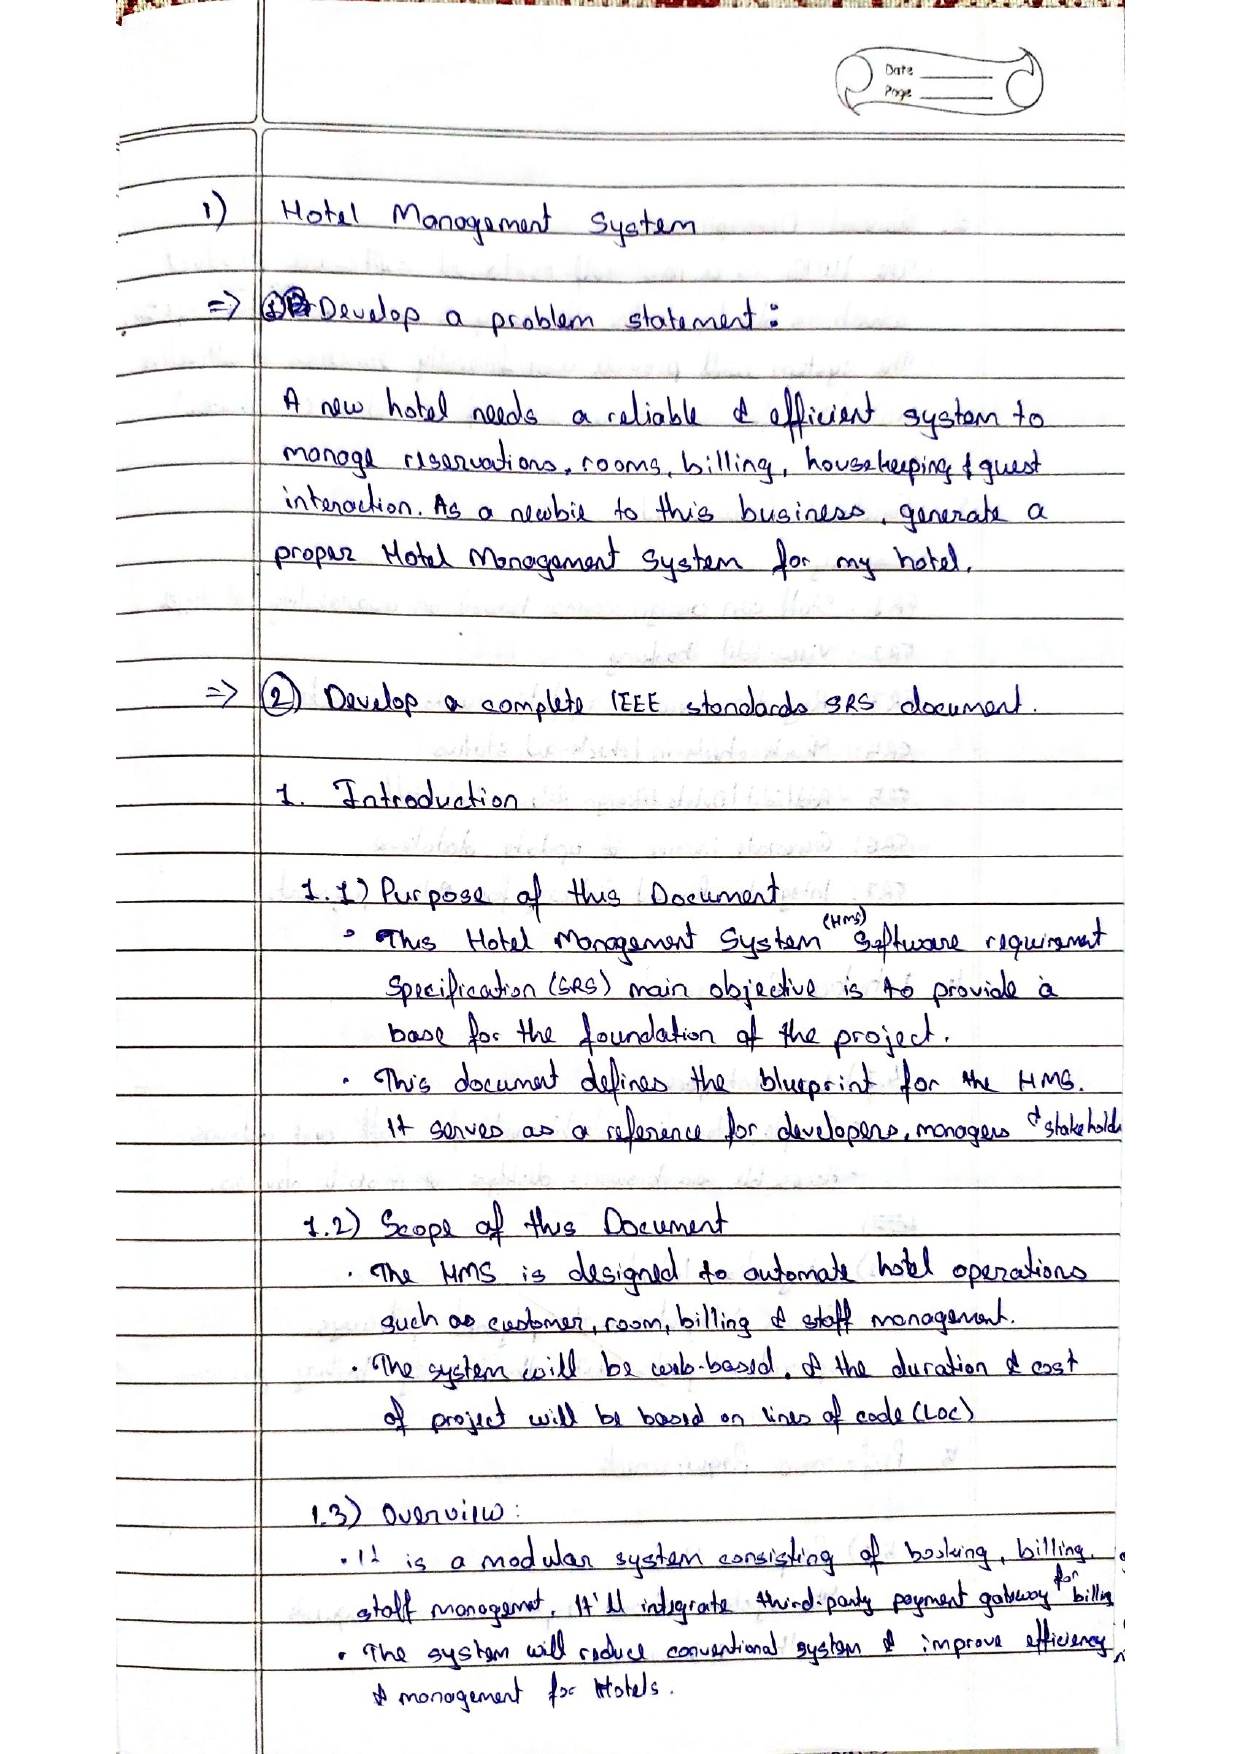 Date
Page
1) Hotel Management System
=> 1) Develop a problem statement:
A new hotel needs a reliable & efficient system to
manage reservations, rooms, billing, housekeeping & guest
interaction. As a newbie to this business, generate a
proper Hotel Management System for my hotel.
=> 2) Develop a complete IEEE standards SRS document.
1. Introduction
1.1) Purpose of this Document
• This Hotel Management System (HMS) Software requirement
Specification (SRS) main objective is to provide a
base for the foundation of the project.
• This document defines the blueprint for the HMS.
It serves as a reference for developers, managers & stakehold
1.2) Scope of this Document
• The HMS is designed to automate hotel operations
such as customer, room, billing & staff management.
• The system will be web-based. & the duration & cost
of project will be based on lines of code (LOC)
1.3) Overview:
• It is a modular system consisting of booking, billing,
staff managemnt. It'll integrate third-party payment gateway for billing
• The system will reduce conventional system & improve efficiency
& management for Hotels.